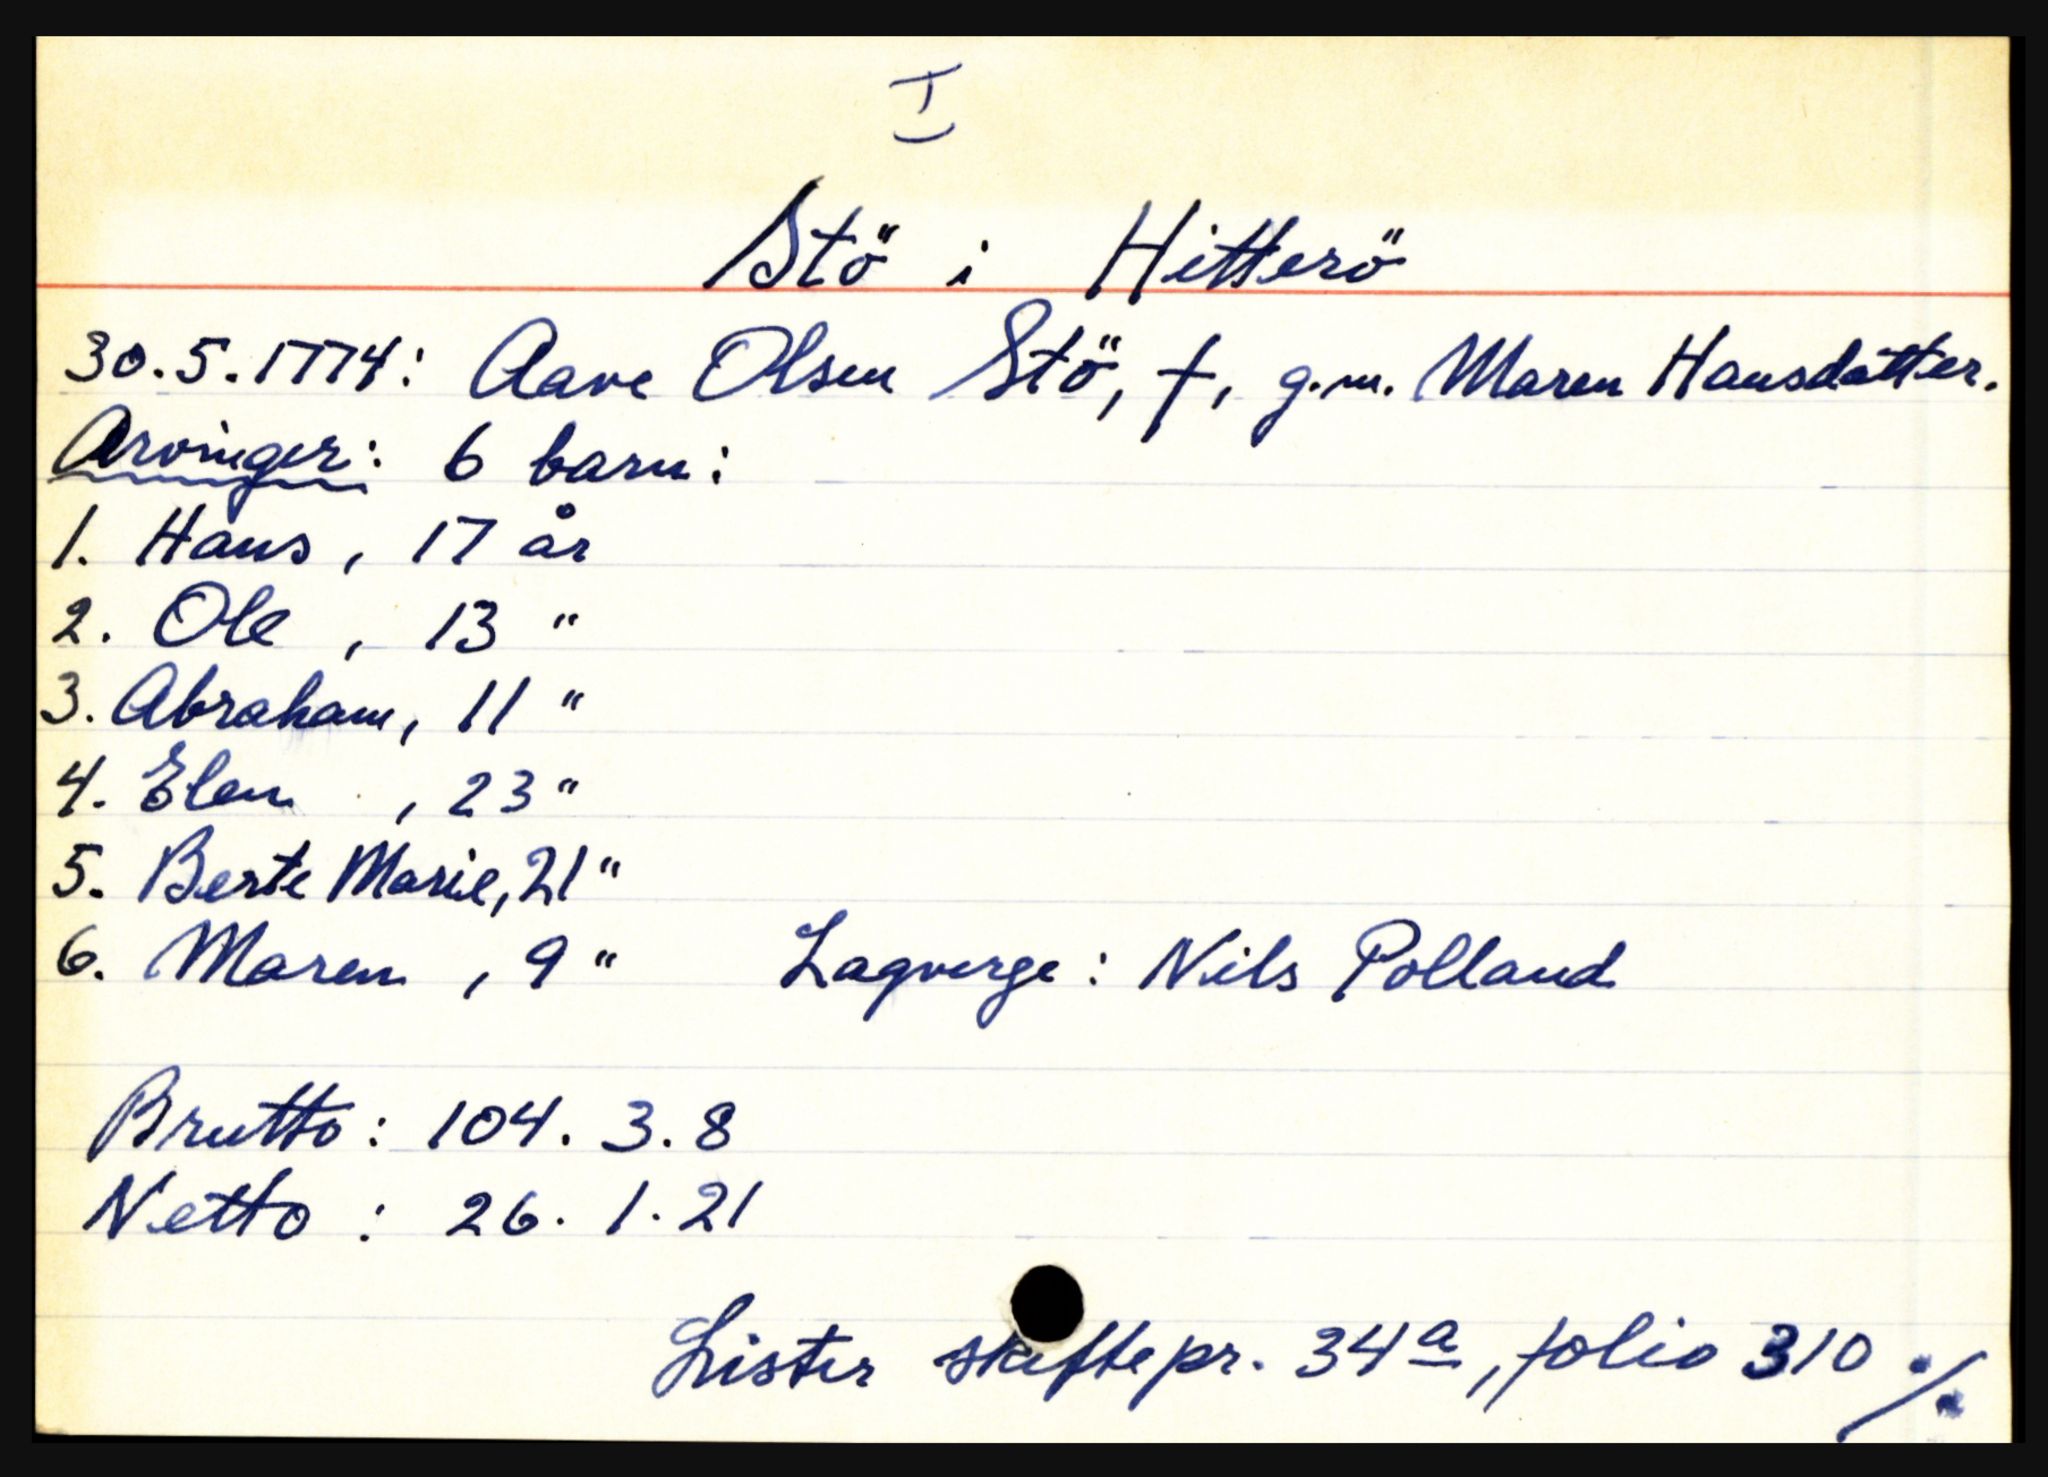 I
Stö i Hitterö
30.5.1774: Aave Olsen Stö, †, g.m. Maren Hansdatter.
Arvinger: 6 barn:
1. Hans, 17 år
2. Ole, 13 "
3. Abraham, 11 "
4. Elen, 23 "
5. Berte Marie, 21 "
6. Maren, 9 " Lagverge: Nils Polland
Brutto: 104. 3. 8
Netto: 26. 1. 21
Lister skiftepr. 34a, folio 310 ./.